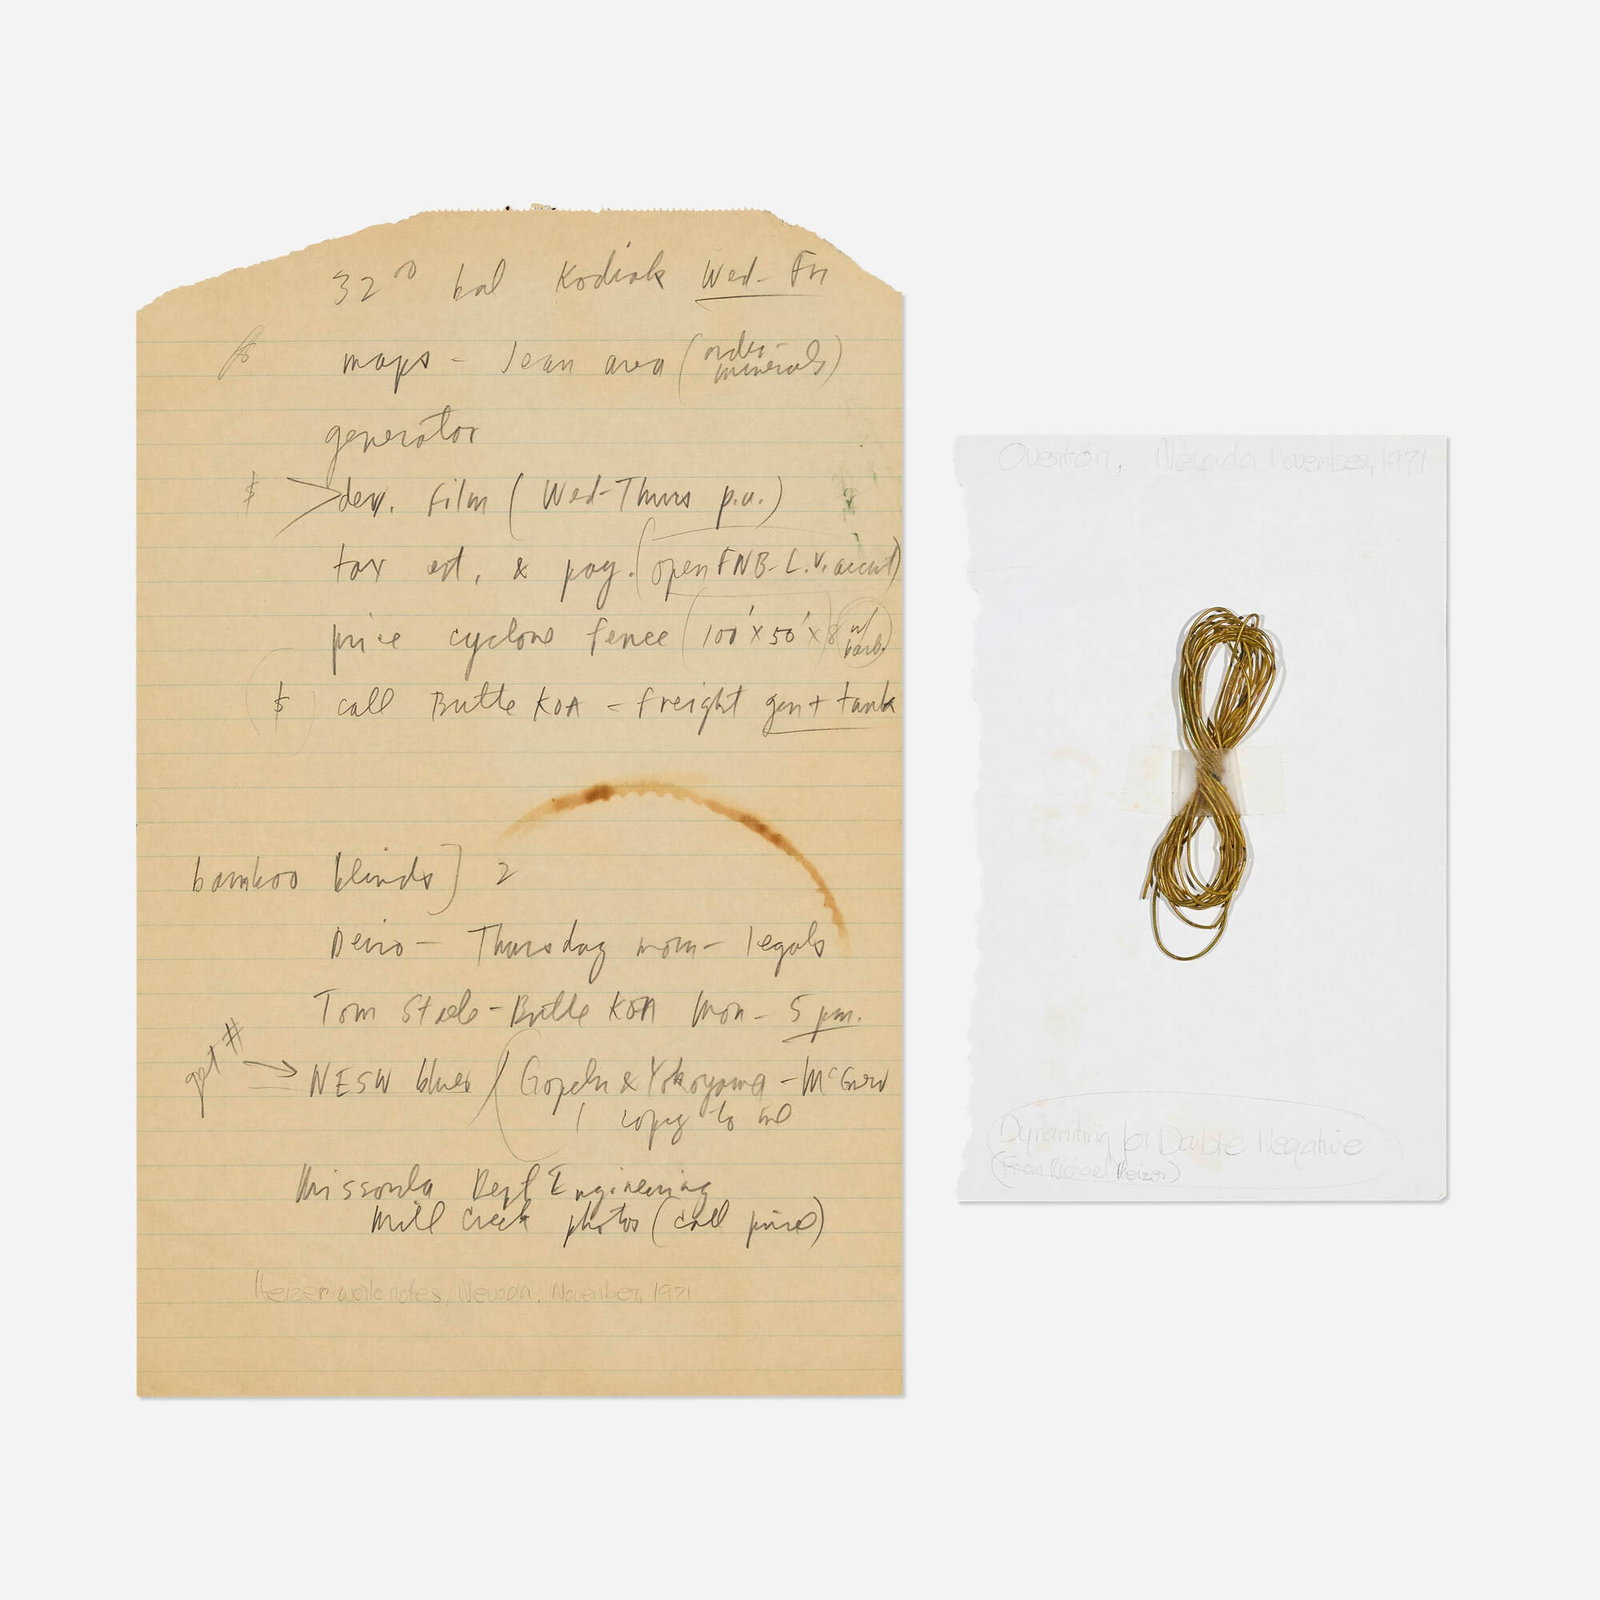 32⁰⁰ bal Kodiak Wed - Fri
maps - Jean area (order - minerals)
generator
$ > dev. film (Wed - Thurs p.u.)
tax est. & pay. (open FNB - L.V. accnt)
price cyclone fence (100' x 50' x 8 w/ barb)
$ call Butte KOA - freight gen + tank
bamboo blinds] 2
Deiro - Thursday morn - legals
Tom Steele - Butte KOA Mon - 5 pm.
get # → NESW blues (& Yokoyama -
1 copy to me
Missoula Dept Engineering
Mill Creek photos (call price)
Heizer work notes, Nevada, November, 1971
Overton, Nevada, November, 1971
Dynamiting for Double Negative
(From Michael Heizer)